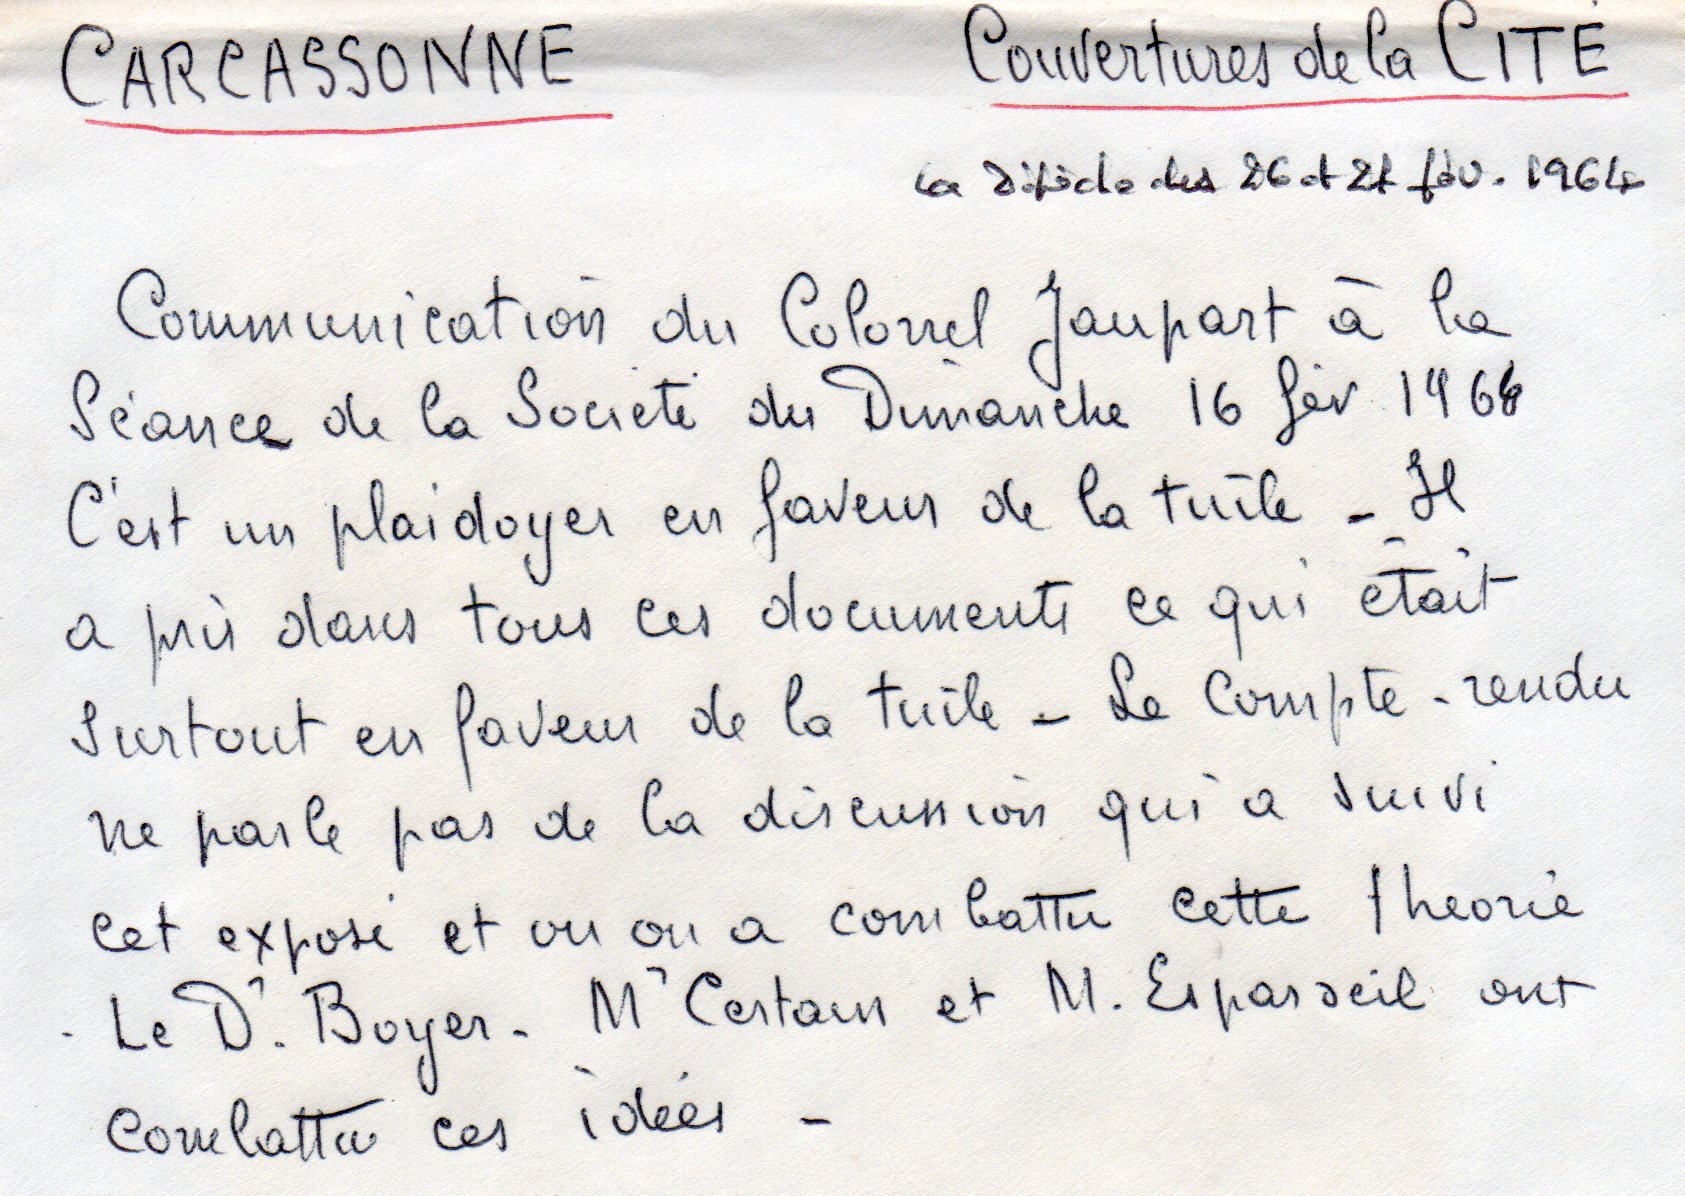 CARCASSONNE
Couvertures de la CITÉ
La Dépêche des 26 et 27 fév. 1964
Communication du Colonel Jaupart à la
Séance de la Société du Dimanche 16 fév 1964
C'est un plaidoyer en faveur de la tuile - Il
a pris dans tous ces documents ce qui était
surtout en faveur de la tuile - Le Compte-rendu
ne parle pas de la discussion qui a suivi
cet exposé et où on a combattu cette théorie
- Le Dr. Boyer - Mr Certain et M. Esparseil ont
combattu ces idées -